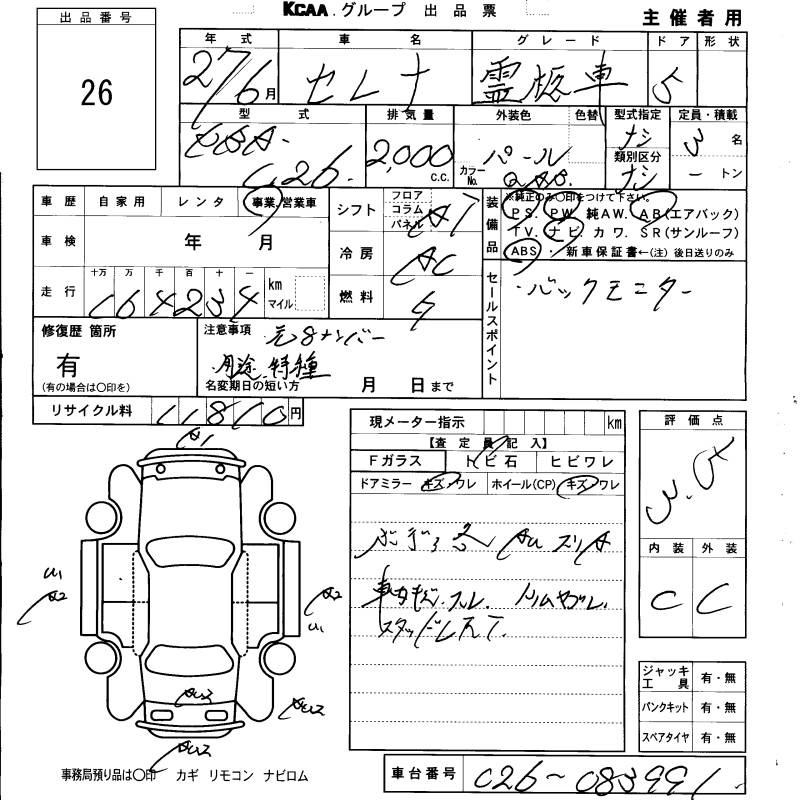 KCAA.グループ 出品票
主催者用
出品番号
26
年式 車名 グレード ドア 形状
27/6月 セレナ 霊柩車 5
型式 排気量 外装色 色替 型式指定 定員・積載
DBA- 2,000 C.C. パール ナシ 3名
C26 カラーNo. QAB 類別区分 ナシ ートン
車歴 自家用 レンタ 事業.営業車
シフト フロア コラム パネル AT
装備品 ※純正のみ○印をつけて下さい。
PS. PW. 純AW. AB(エアバック)
TV. ナビ. カワ. SR(サンルーフ)
ABS ・新車保証書←(注)後日送りのみ
車検 年 月
冷房 AC
走行 十万 万 千 百 十 一 km マイル
164234
燃料 ガ
セールスポイント
・バックモニター
修復歴 箇所
有
(有の場合は○印を)
注意事項 元8ナンバー
用途.特種
名変期日の短い方 月 日まで
リサイクル料 11810円
現メーター指示 km
【査定員記入】
Fガラス トビ石 ヒビワレ
ドアミラー キズ.ワレ ホイール(CP) キズ.ワレ
ボディ
車内
評価点
3.5
内装 外装
C C
A1
U1
A2
A2
U1
AU3
AU2
AU2
ジャッキ工具 有・無
パンクキット 有・無
スペアタイヤ 有・無
事務局預り品は○印 カギ リモコン ナビロム
車台番号 C26-083991